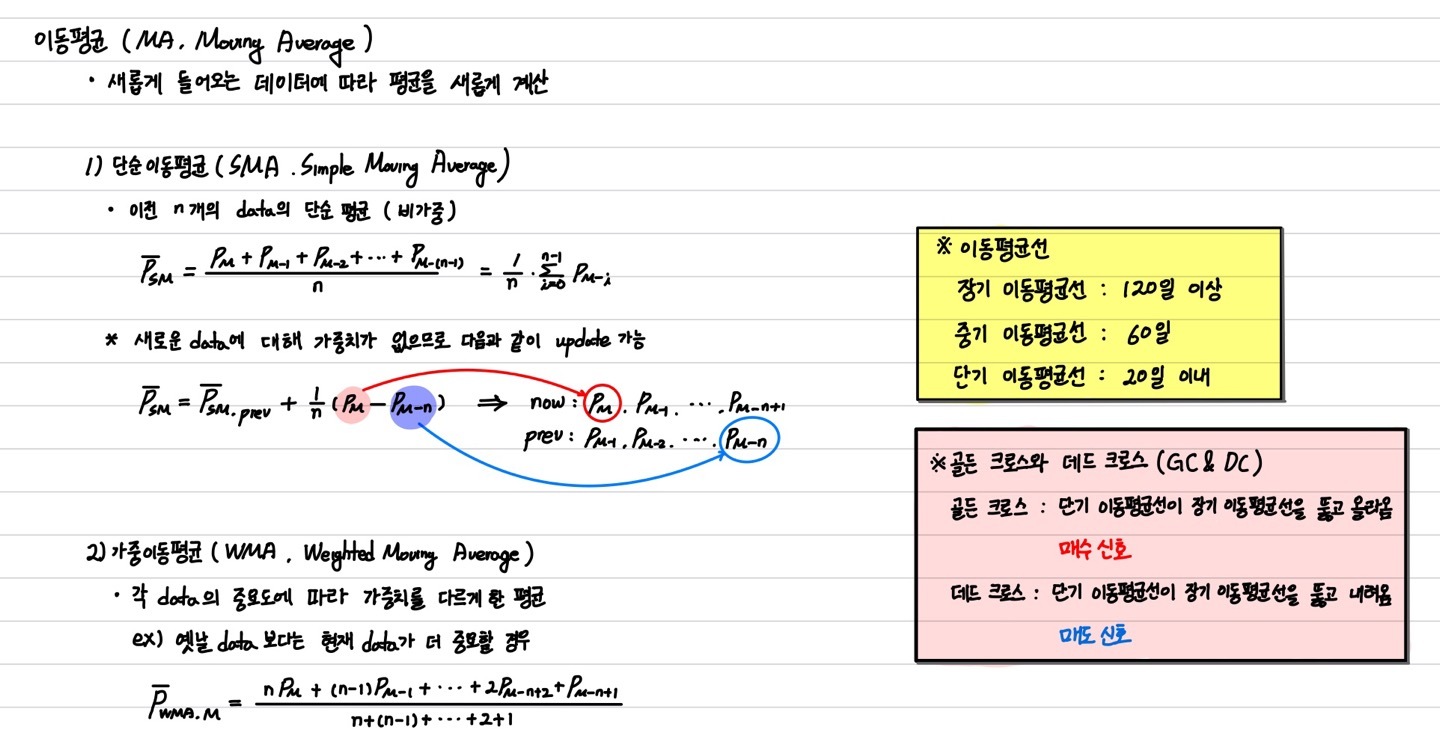 이동평균 (MA, Moving Average)
· 새롭게 들어오는 데이터에 따라 평균을 새롭게 계산
1) 단순이동평균 (SMA, Simple Moving Average)
· 이전 n개의 data의 단순 평균 (비가중)
P̅_SM = (P_M + P_M-1 + P_M-2 + ··· + P_M-(n-1)) / n = 1/n · Σ_{i=0}^{n-1} P_M-i
* 새로운 data에 대해 가중치가 없으므로 다음과 같이 update 가능
P̅_SM = P̅_SM,prev + 1/n (P_M - P_M-n) ⇒ now : P_M, P_M-1, ···, P_M-n+1
prev : P_M-1, P_M-2, ···, P_M-n
2) 가중이동평균 (WMA, Weighted Moving Average)
· 각 data의 중요도에 따라 가중치를 다르게 한 평균
ex) 옛날 data 보다는 현재 data가 더 중요할 경우
P̅_WMA,M = (nP_M + (n-1)P_M-1 + ··· + 2P_M-n+2 + P_M-n+1) / (n+(n-1)+ ··· +2+1)
※ 이동평균선
장기 이동평균선 : 120일 이상
중기 이동평균선 : 60일
단기 이동평균선 : 20일 이내
※ 골든 크로스와 데드 크로스 (GC & DC)
골든 크로스 : 단기 이동평균선이 장기 이동평균선을 뚫고 올라옴
매수 신호
데드 크로스 : 단기 이동평균선이 장기 이동평균선을 뚫고 내려옴
매도 신호